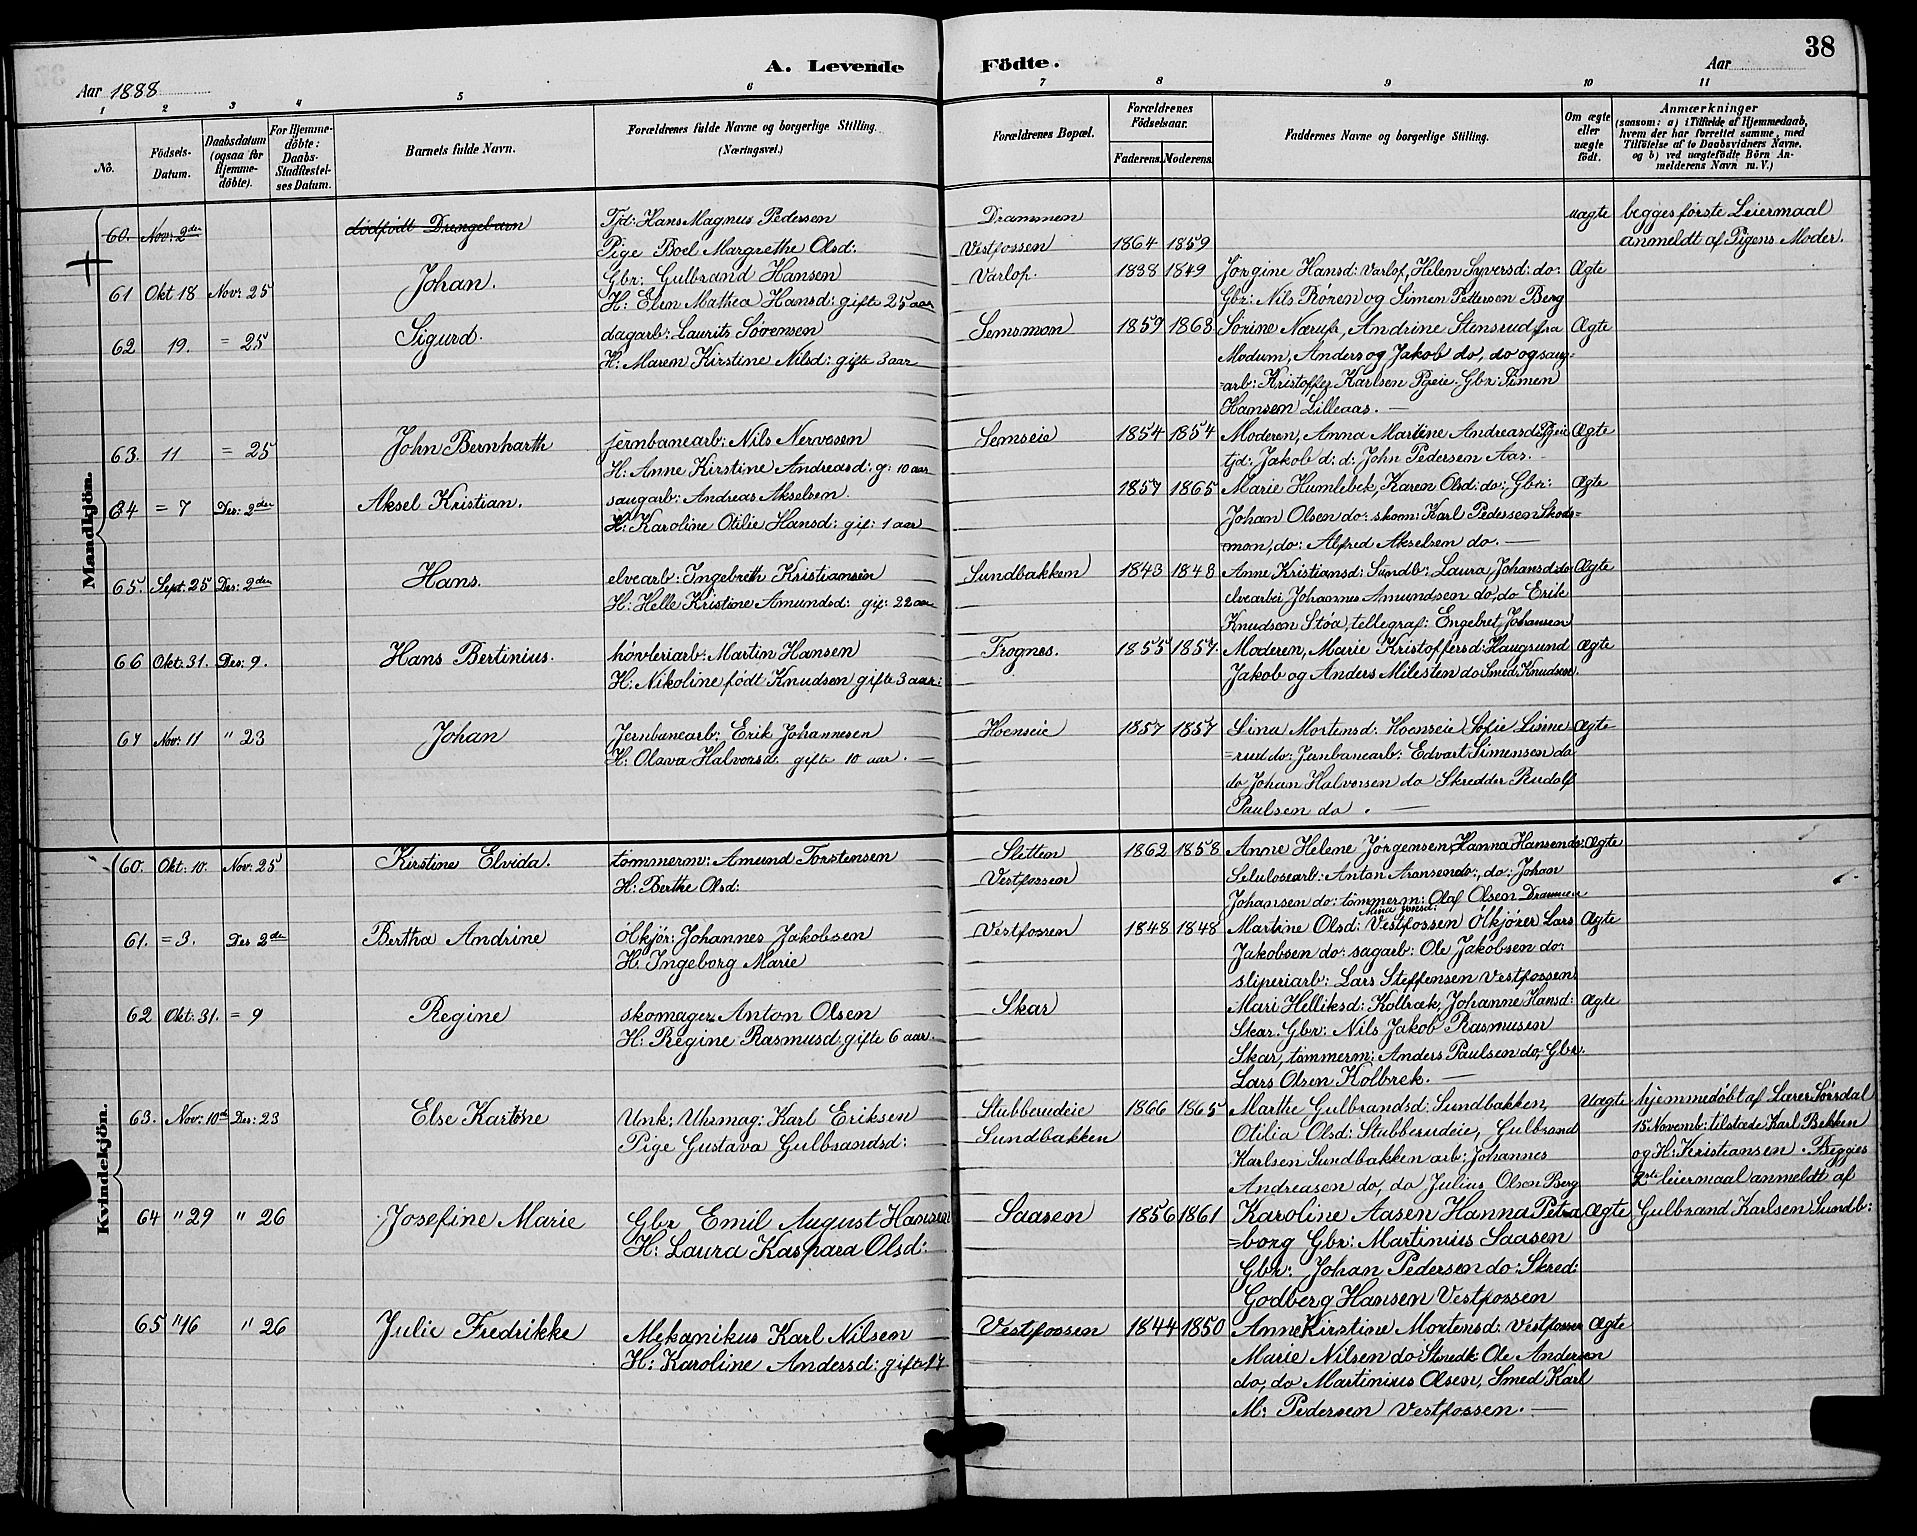 38
A. Levende Födte.
Aar 1888
Aar
1 2 3 4 5 6 7 8 9 10 11
No.
Födsels-Datum.
Daabsdatum (ogsaa for Hjemme-döbte).
For Hjemme-döbte: Daabs-Stadfæstel-ses Datum.
Barnets fulde Navn.
Forældrenes fulde Navne og borgerlige Stilling. (Næringsvei.)
Forældrenes Bopæl.
Forældrenes Födselsaar.
Faderens. Moderens.
Faddernes Navne og borgerlige Stilling.
Om ægte eller uægte födt.
Anmærkninger
(saasom: a) i Tilfælde af Hjemmedaab,
hvem der har forrettet samme, med
Tilföielse af to Daabsvidners Navne,
og b) ved uægtefödte Börn An-
melderens Navn m. V.)
Mandkjön.
60. Nov: 2den dödfödt Drengebarn Tjd: Hans Magnus Pedersen Drammen uægte begges første Leiermaal
Pige Boel Margrethe Olsd: Vestfossen 1864 1859 anmeldt af Pigens Moder.
61 Okt 18 Nov: 25 Johan. Gbr: Gulbrand Hansen Varlof. 1838 1849 Jørgine Hansd: Varlof, Helen Syversd: do: Ægte
H: Elen Mathea Hansd: gifte 25 aar Gbr: Nils Røren og Simen Pettersen Berg
62 19. = 25 Sigurd. dagarb: Laurits Sørensen Semsmon 1859 1863 Sørine Nærup, Andrine Stensrud fra Ægte
H: Maren Kirstine Nilsd: gifte 3 aar Modum, Anders og Jakob do, do og saug=
=arb: Kristoffer Karlsen Pseie. Gbr: Simen
Hansen Lilleaas. —
63. 11 = 25 John Bernharth jernbanearb: Nils Nervesen Semseie 1854 1854 Moderen, Anna Martine Andreasd: Pseie Ægte
H: Anne Kirstine Andreasd: g: 10 aar tjd: Jakob d: d: John Pedersen Aas. —
64 = 7 Des: 2den Aksel Kristian. saugarb: Andreas Akselsen. 1857 1865 Marie Humlebek, Karen Olsd: do: Gbr: Ægte
H: Karoline Otilie Hansd: gif: 1 aar Johan Olsen do: skom: Karl Pedersen Skods=
=mon, do: Alfred Akselsen do. —
65. Sept. 25 Des: 2den Hans. elvearb: Ingebreth Kristiansen Sundbakken 1843 1843 Anne Kristiansd: Sundb: Laura Johansd: do: Ægte
H: Helle Kristine Amundsd: gif: 22 aar elvearbei Johannes Amundsen do, do Erik
Knudsen Støa, tellegraf: Engebret Johansen
66 Okt: 31. Des: 9. Hans Bertinius. høvleriarb: Martin Hansen Trognes. 1855 1857 Moderen, Marie Kristoffersd: Haugsund Ægte
H: Nikoline født Knudsen gifte 3 aar: Jakob og Anders Milesten do Smed Knudsen.
67 Nov: 11 " 23 Johan Jernbanearb: Erik Johannesen Hoenseie 1857 1857 Lina Mortensd: Hoenseie Sofie Linne Ægte
H: Olava Halvorsd: gifte 10 aar. — =rud do: Jernbanearb: Edvart Simensen do
do Johan Halvorsen do Skredder Rudolf
Paulsen do. —
Kvindekjön.
60. Okt: 10. Nov: 25 Kirstine Elvida. tømmerm: Amund Torstensen Sletten 1862 1858 Anne Helene Jørgensen, Hanna Hansen do: Ægte
H: Berthe Olsd: Vestfossen Selulosearb: Anton Aronsen do:, do: Johan
Johansen do: tømmerm: Olaf Olsen Drammen
61. = 3. Des 2de Bertha Andrine Ölkjör: Johannes Jakobsen Vestfossen 1848 1848 Martine Olsd: Vestfossen Ölkjører Lars Ægte
H: Ingeborg Marie Jakobsen do: sagarb: Ole Jakobsen do:
sliperiarb: Lars Steffensen Vestfossen
62 Okt: 31. = 9 Regine skomager Anton Olsen Skar Mari Helliksd: Kolbræk, Johanne Hansd: Ægte
H: Regine Rasmusd: gifte 6 aar. Skar. Gbr: Nils Jakob Rasmusen
Skar, tømmerm: Anders Paulsen do, Gbr.
Lars Olsen Kolbrek. —
63. Nov: 10de Des: 23 Else Katrine Unk: Uhrmag: Karl Eriksen Stubberudeie 1866 1865 Marthe Gulbrandsd: Sundbakken, Uægte hjemmedøbt af Lærer Sørsdal
Pige Gustava Gulbrandsd: Sundbakken Otilia Olsd: Stubberudeie, Gulbrand 15 Novemb: tilstæde Karl Bekken
Karlsen Sundbakken arb: Johannes og H: Kristiansen. Begges
Andreasen do, do Julius Olsen Berg 2det leiermaal anmeldt af
64 " 29 " 26 Josefine Marie Gbr Emil August Hansen Saasen 1856 1861 Karoline Aasen Hanna Petra Ægte Gulbrand Karlsen Sundb:
H: Laura Kaspara Olsd: =borg Gbr: Martinius Saasen
Gbr: Johan Pedersen do: Skred:
Godberg Hansen Vestfossen
65 " 16 " 26 Julie Fredrikke Mekanikus Karl Nilsen Vestfossen 1844 1850 Anne Kirstine Mortensd: Vestfossen Ægte
H: Karoline Andersd: gifte 17 Marie Nilsen do: Snedk: Ole Andersen
do, do Martinius Olsen, Smed Karl
M: Pedersen Vestfossen. —